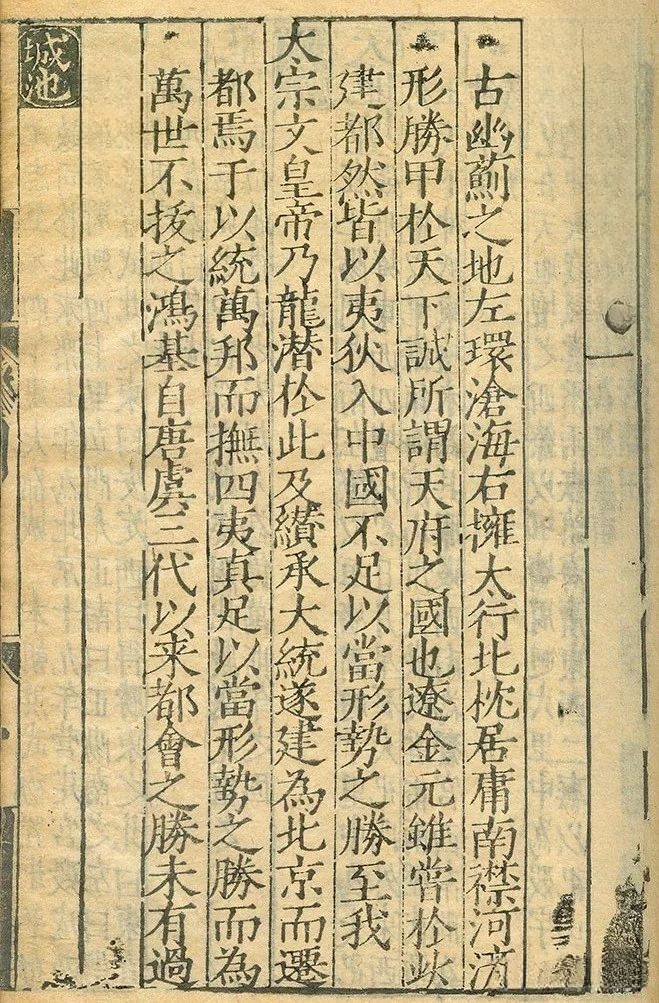 古幽薊之地左環滄海右擁太行北枕居庸南襟河濟
形勝甲扵天下誠所謂天府之國也遼金元雖嘗扵此
建都然皆以夷狄入中國不足以當形勢之勝至我
太宗文皇帝乃龍潛扵此及纉承大統遂建為北京而遷
都焉于以統萬邦而撫四夷真足以當形勢之勝而為
萬世不拔之鴻基自唐虞三代以来都會之勝未有過
城池